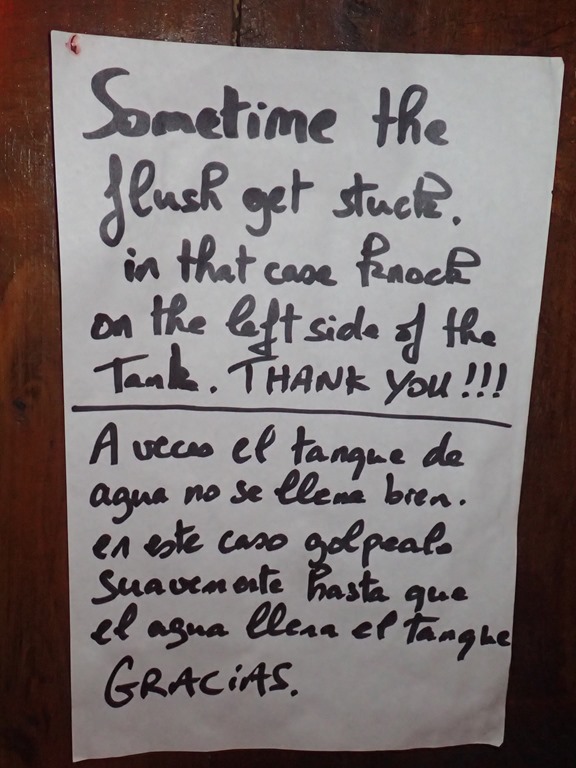 Sometime the
flush get stuck.
in that case knock
on the left side of the
Tank. THANK YOU!!!
A veces el tanque de
agua no se llena bien.
en este caso golpealo
suavemente hasta que
el agua llena el tanque
GRACIAS.